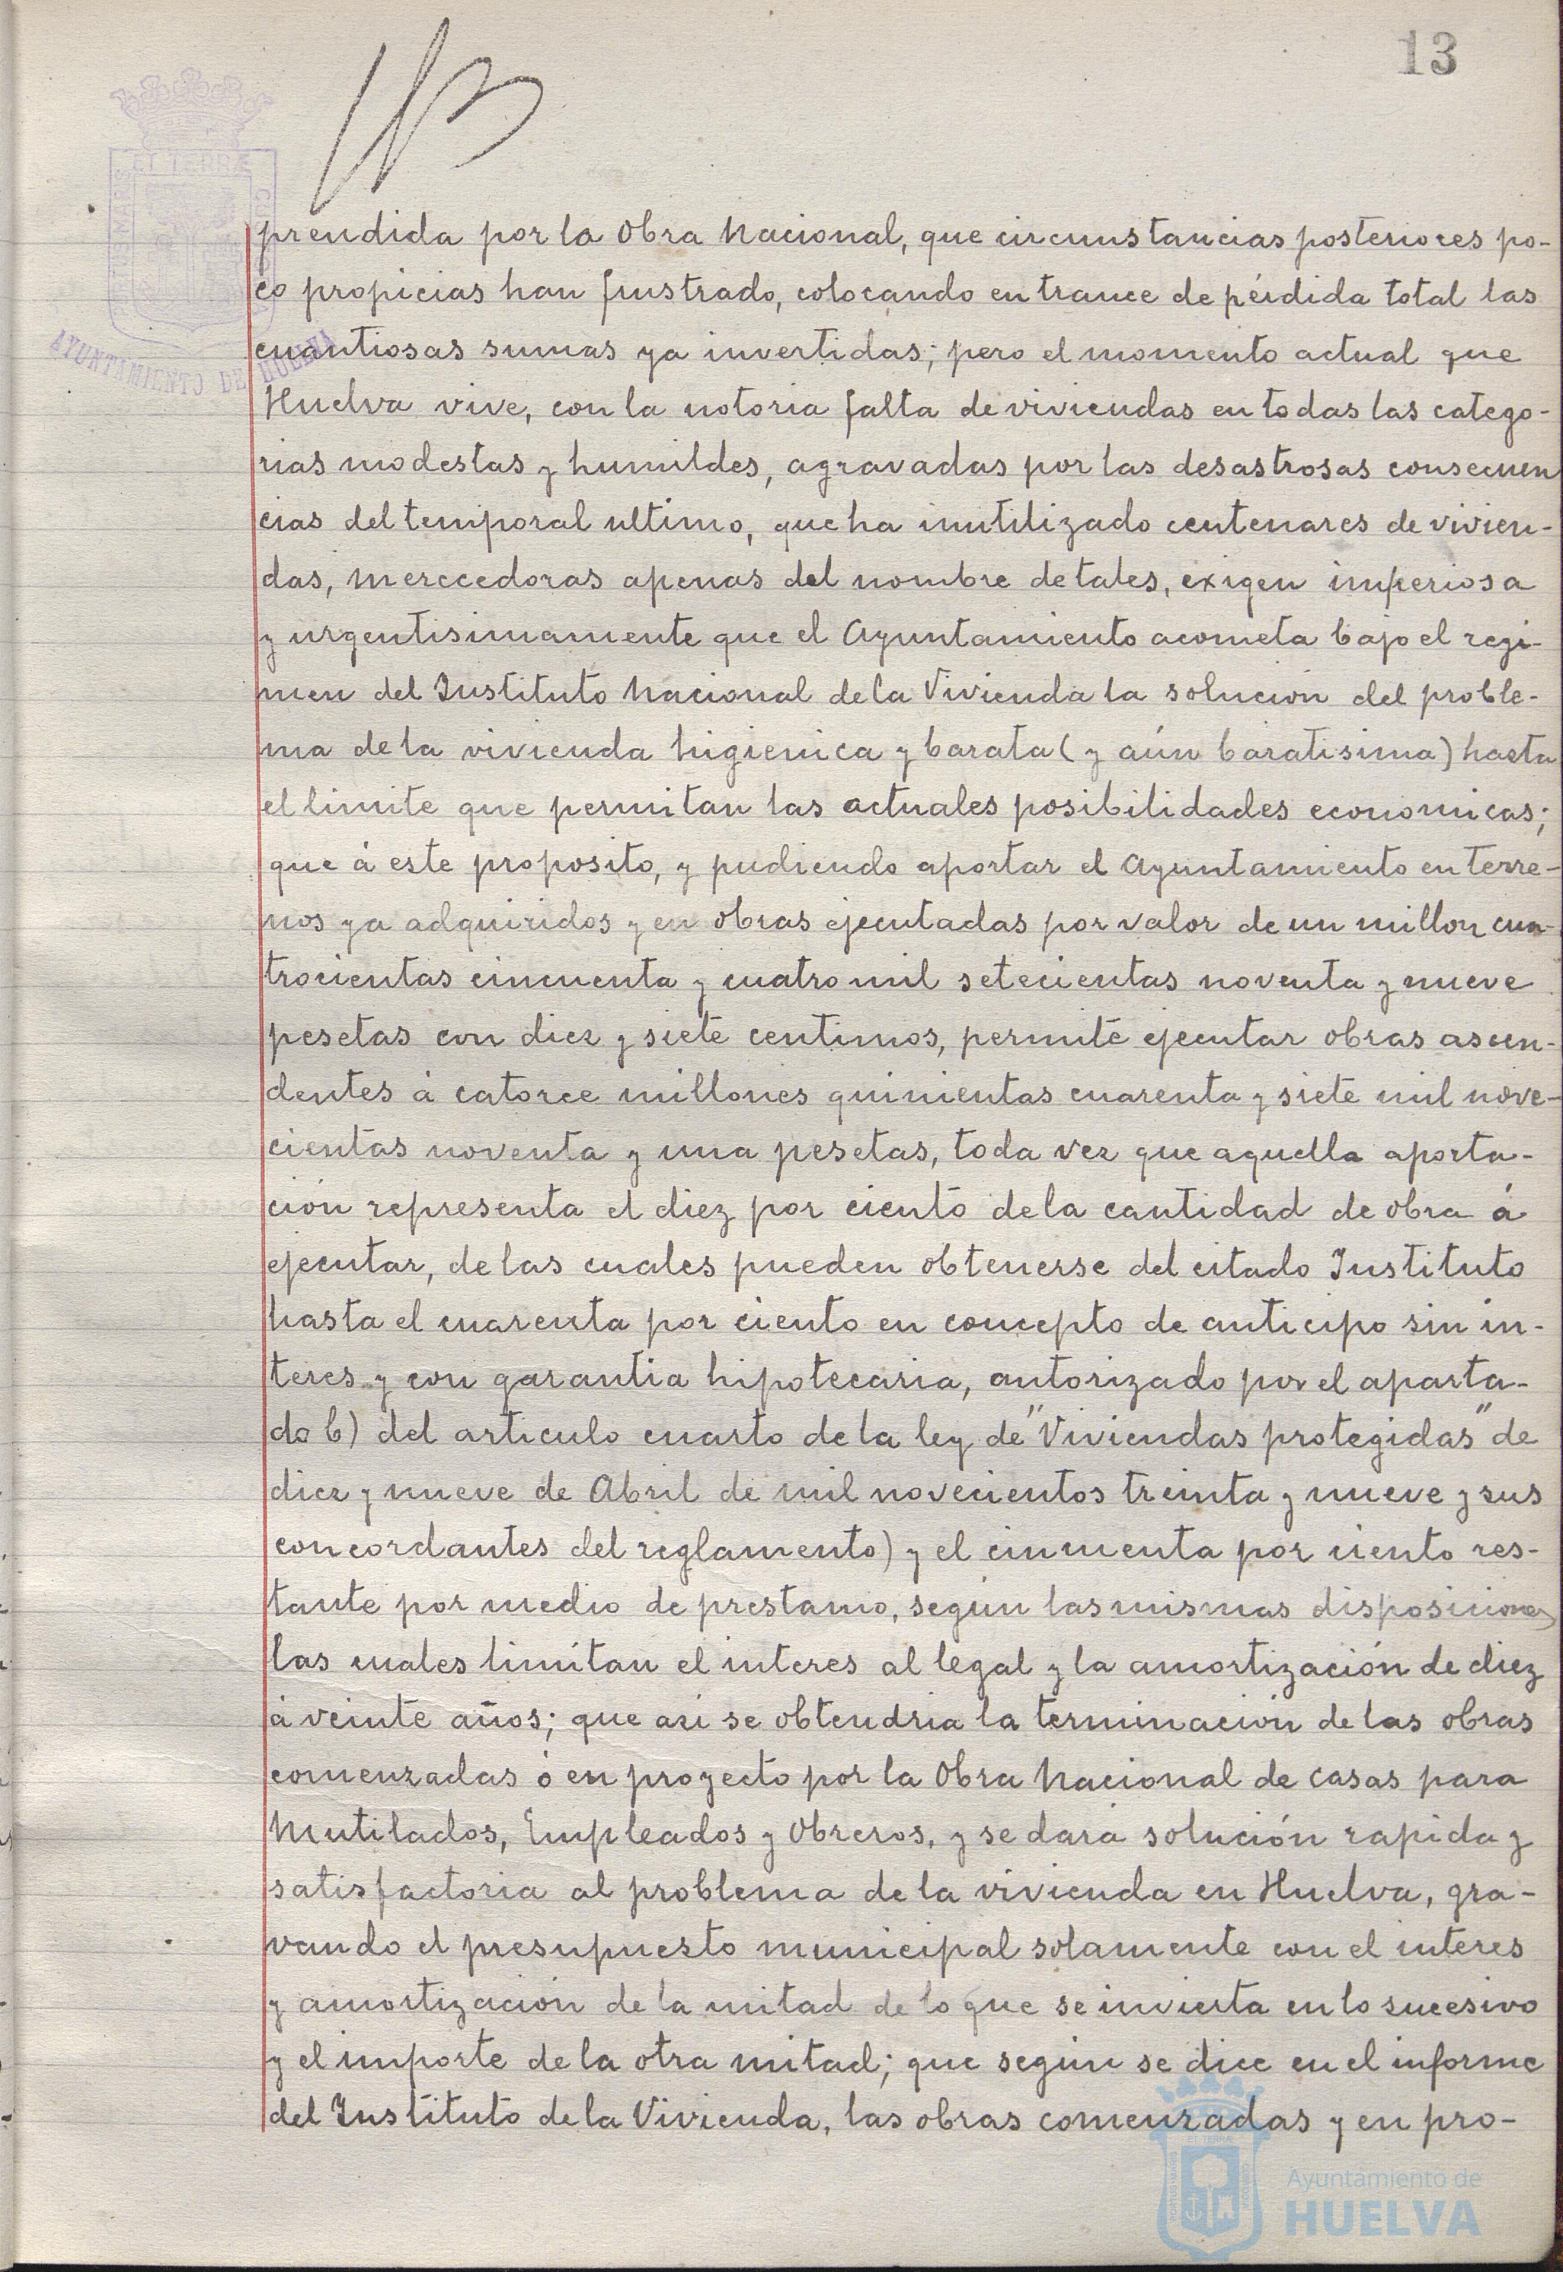 13
ET TERRÆ
AYUNTAMIENTO DE HUELVA
prendida por la Obra Nacional, que circunstancias posteriores po-
co propicias han frustrado, colocando en trance de pérdida total las
cuantiosas sumas ya invertidas; pero el momento actual que
Huelva vive, con la notoria falta de viviendas en todas las catego-
rias modestas y humildes, agravadas por las desastrosas consecuen
cias del temporal ultimo, que ha inutilizado centenares de vivien-
das, merecedoras apenas del nombre de tales, exigen imperiosa
y urgentisimamente que el Ayuntamiento acometa bajo el regi-
men del Instituto Nacional de la Vivienda la solución del proble-
ma de la vivienda higienica y barata (y aún baratisima) hasta
el limite que permitan las actuales posibilidades economicas;
que á este proposito, y pudiendo aportar el Ayuntamiento en terre-
nos ya adquiridos y en obras ejecutadas por valor de un millon cua-
trocientas cincuenta y cuatro mil setecientas noventa y nueve
pesetas con diez y siete centimos, permite ejecutar obras ascen-
dentes á catorce millones quinientas cuarenta y siete mil nove-
cientas noventa y una pesetas, toda vez que aquella aporta-
ción representa el diez por ciento de la cantidad de obra á
ejecutar, de las cuales pueden obtenerse del citado Instituto
hasta el cuarenta por ciento en concepto de anticipo sin in-
teres y con garantia hipotecaria, autorizado por el aparta-
do b) del articulo cuarto de la ley de "Viviendas protegidas" de
diez y nueve de Abril de mil novecientos treinta y nueve y sus
concordantes del reglamento) y el cincuenta por ciento res-
tante por medio de prestamo, según las mismas disposiciones
las cuales limitan el interes al legal y la amortización de diez
á veinte años; que asi se obtendria la terminación de las obras
comenzadas ó en proyecto por la Obra Nacional de casas para
Mutilados, Empleados y Obreros, y se dará solución rapida y
satisfactoria al problema de la vivienda en Huelva, gra-
vando el presupuesto municipal solamente con el interes
y amortización de la mitad de lo que se invierta en lo sucesivo
y el importe de la otra mitad; que según se dice en el informe
del Instituto de la Vivienda, las obras comenzadas y en pro-
Ayuntamiento de
HUELVA